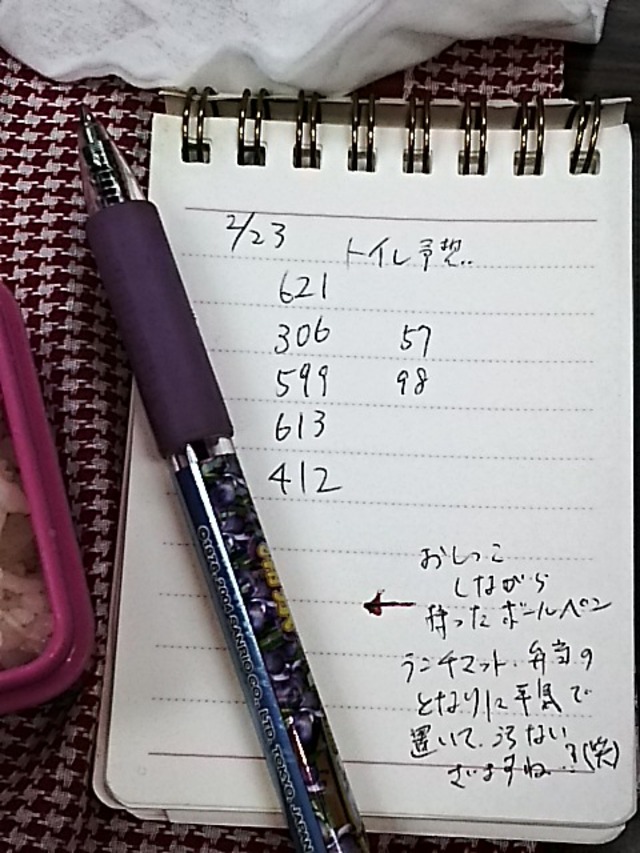 2/23
トイレ予想..
621
306 57
599 98
613
412
おしっこ
しながら
持ったボールペン
ランチマット、弁当の
となりに平気で
置いて、うろない
ざますね..?(笑)
©1976, 2004 SANRIO CO., LTD. TOKYO, JAPAN